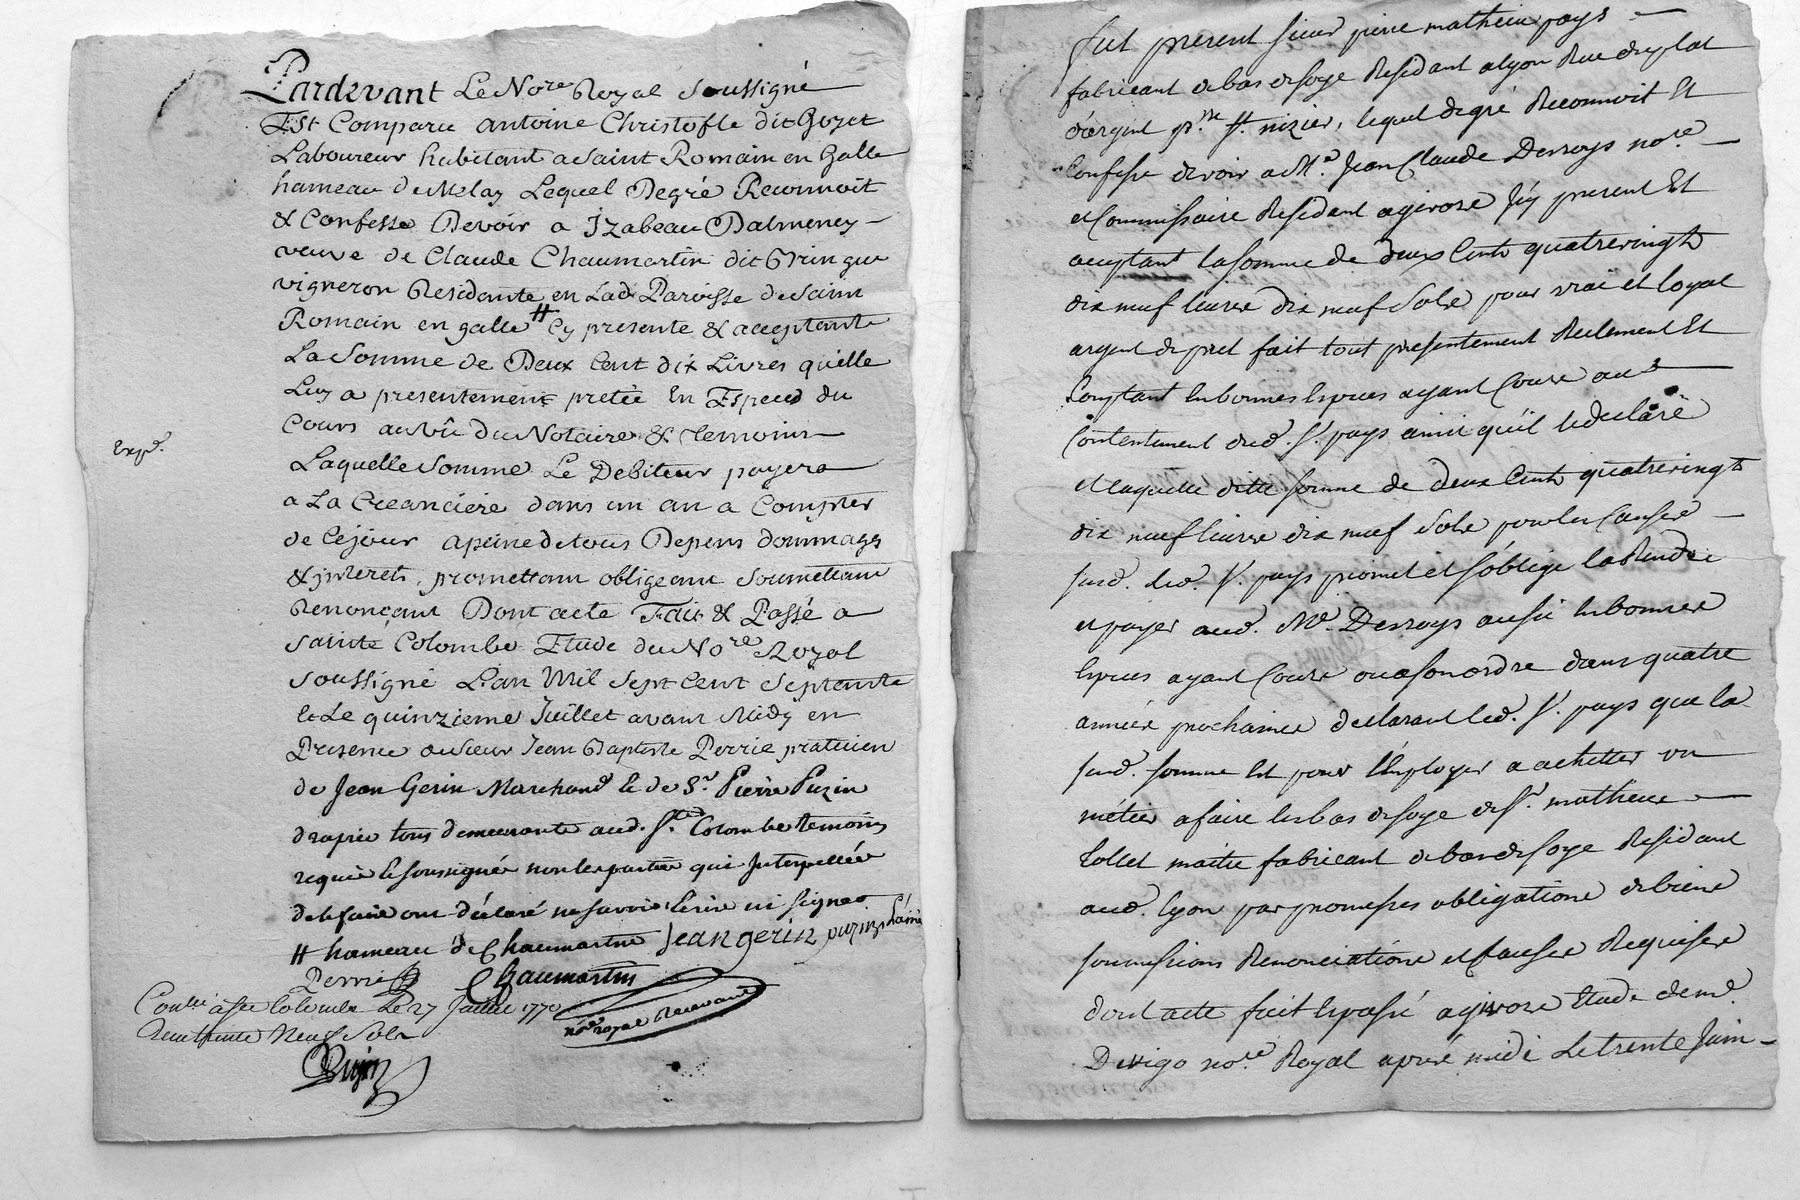 Pardevant Le Nore Royal Soussigné
Est Comparu antoine Christofle dit Gozet
Laboureur habitant a Saint Romain en Galle
hameau de Melay Lequel Degré Reconnoit
& Confesse Devoir a Izabeau Dalmeney
veuve de Claude Chaumartin dit Gringue
vigneron Residante en Lad Paroisse de Saint
Romain en galle # Cy presente & acceptante
La Somme de Deux Cent dix Livres qu'elle
Luy a presentement pretée En Especes du
Cours au vû du Notaire & temoins
Laquelle Somme Le Debiteur payera
a La Creanciere dans un an a Compter
de Cejour apeine de tous Depens dommages
& interets, promettant obligeant Soumettant
Renonçant Dont acte Fait & Passé a
Sainte Colombe Etude du Nore Royal
Soussigné L'an Mil Sept Cent Septente
& Le quinzieme Juillet avant Midy en
Presence du Sieur Jean Baptiste Perrie praticien
de Jean Gerin Marchand & de Sr. Pierre Puzin
drapier tous demeurants aud. Ste Colombe temoins
requis & soussignés non les parties qui Interpellées
de le faire ont déclaré ne savoir écrire ni signer
# hameau de Chaumartin Jean gerin puzin l'aîné
Perrie Chaumartin
nore royal Recevant
Expd.
Conllé a Ste Colombe Le 27 Juillet 1770
Reçu trente Neuf Sols
fut present sieur pierre mathieu pays
fabricant de bas de soye Residant a lyon Rue du plat
d'argent psse St. nizier, lequel de gré Reconnoit Et
Confesse devoir a Me. Jean Claude Desroys nore
et Commissaire Residant a givors Icy present Et
acceptant la somme de deux Cents quatrevingts
dix neuf livres dix neuf Sols pour vrai et loyal
argent de pret fait tout presentement Reelement Et
Comptant en bonnes Especes ayant Cours au
Contentement dud. Sr. pays ainsi qu'il le declare
et laquelle ditte somme de deux Cents quatrevingts
dix neuf livres dix neuf Sols pour les Causes
susd. led. Sr. pays promet et s'oblige la Rendre
et payer aud. Me. Desroys aussi en bonnes
Especes ayant Cours ou a son ordre dans quatre
années prochaines declarant led. Sr. pays que la
susd. somme Est pour l'Employer a achetter un
métier a faire les bas de soye de Sr. mathieu
Collet maitre fabricant de bas de soye Residant
aud. lyon par promesses obligations de biens
soumissions Renonciations et Clauses Requises
dont acte fait & passé a givors Etude de me.
Devigo nore. Royal après midi Le trente Juin